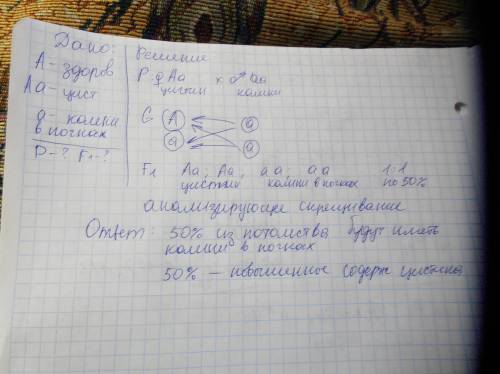 Дано:
А - здоров
Аа - цист
а - камни
в почках
P - ? F1 - ?
Решение
P ♀ Aa × ♂ aa
цистин камни
G A a
a a
F1 Aa, Aa, aa, aa 1:1
цистин камни в почках по 50%
анализирующее скрещивание
Ответ: 50% из потомства будут иметь
камни в почках
50% - повышенное содерж цистина